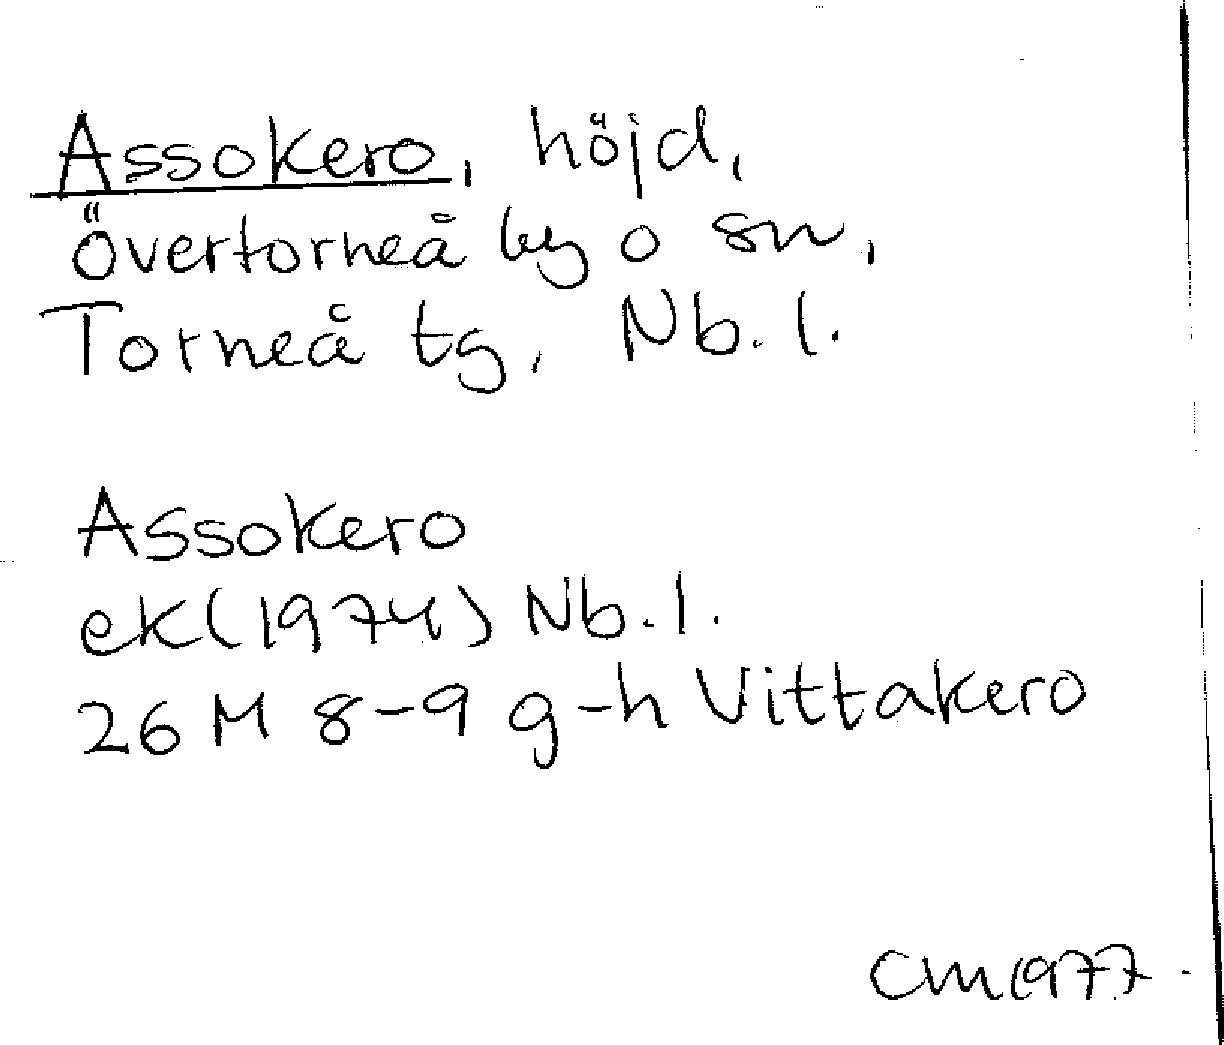 Assokero, höjd,
Övertorneå by o sn,
Torneå tg, Nb. l.
Assokero
ek (1974) Nb. l.
26 M 8-9 g-h Vittakero
CM 1977.